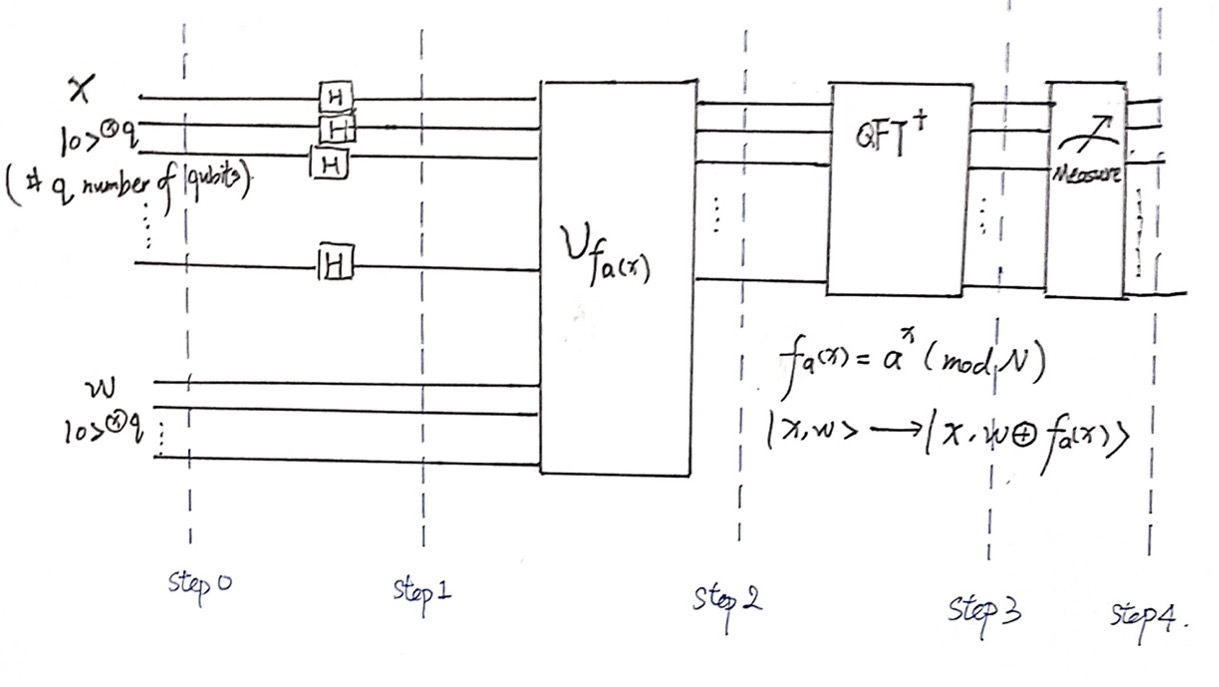 x
|0>⊗q
(# q number of qubits)
H
H
H
H
U_{f_a(x)}
QFT†
Measure
w
|0>⊗q
f_a(x) = a^x (mod N)
|x,w> → |x, w ⊕ f_a(x)>
Step 0
Step 1
Step 2
Step 3
Step 4.